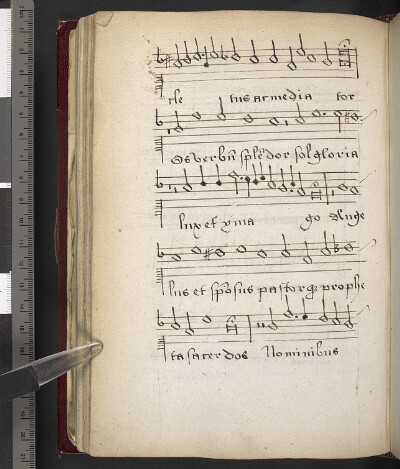 cle tus ac media tor
Os verbū splēdor sol gloria
lux et yma go Ange
lus et spōsus pastorq prophe
ta sacer dos Nominibus